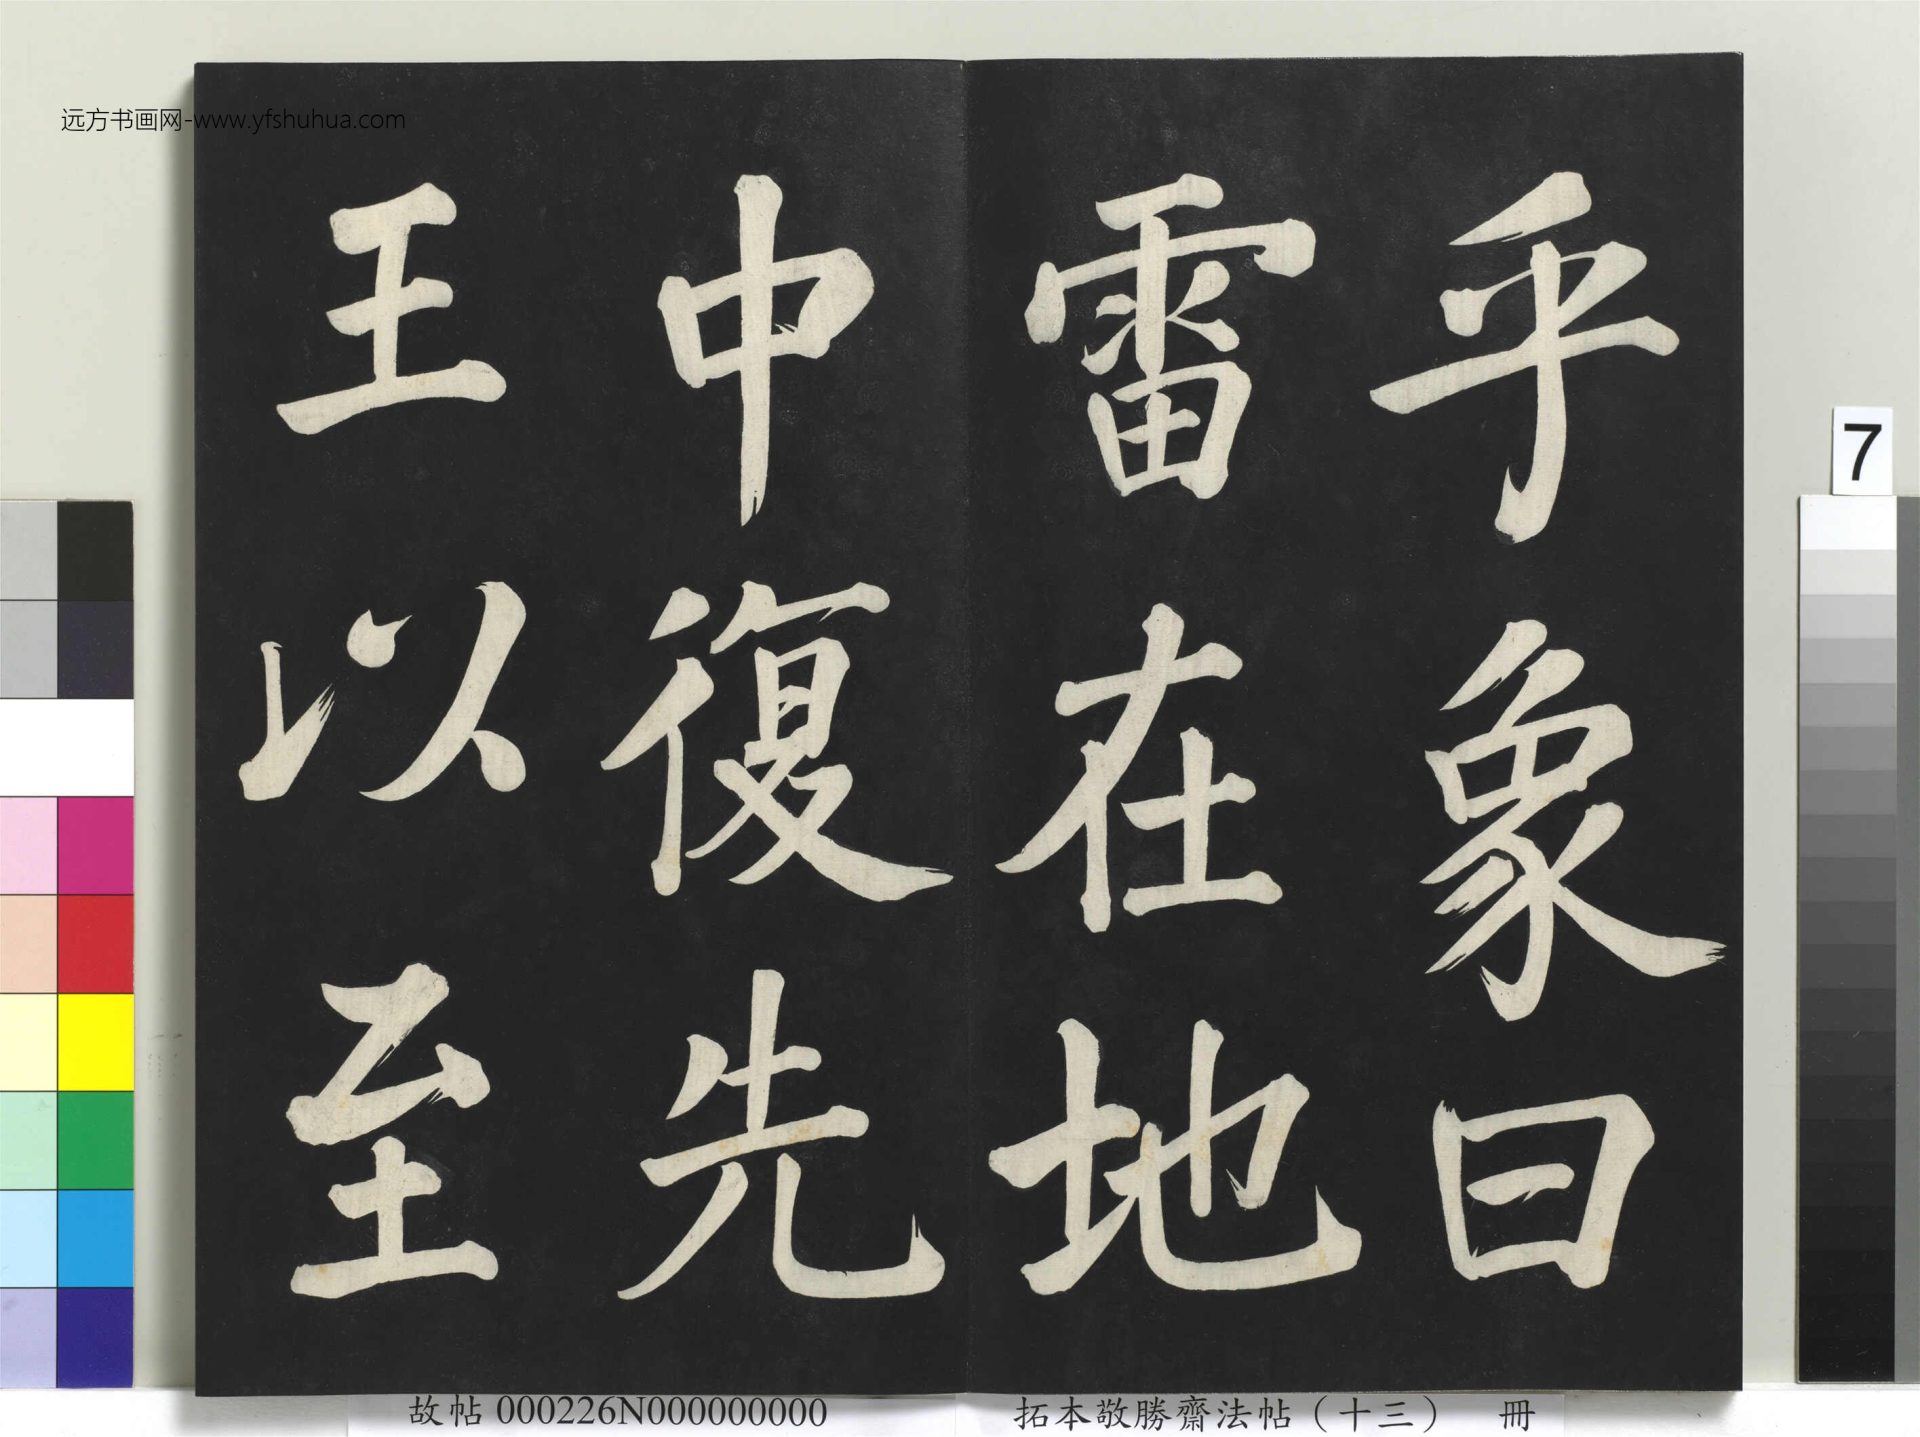 远方书画网-www.yfshuhua.com
乎象曰
雷在地
中復先
王以至
7
故帖 000226N000000000
拓本敬勝齋法帖（十三） 冊